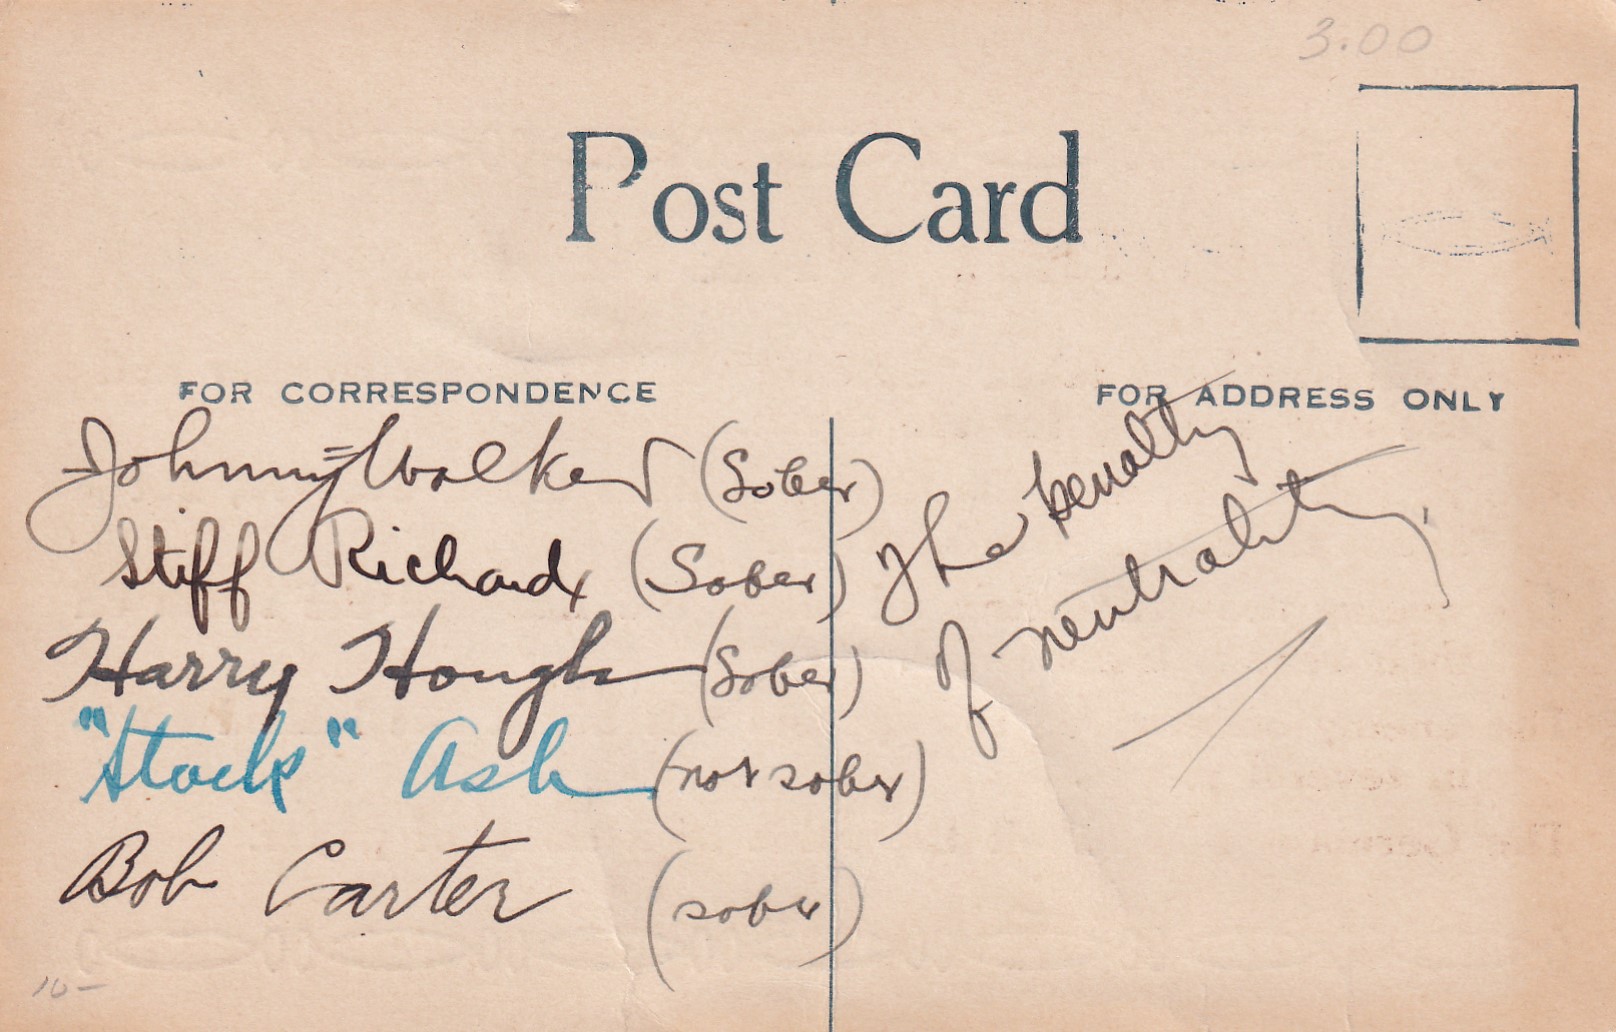 3.00
Post Card
FOR CORRESPONDENCE
FOR ADDRESS ONLY
Johnny Walker (Sober)
Stiff Richard (Sober)
Harry Hough (Sober)
"Stock" Ash (not sober)
Bob Carter (sober)
The penalty
of neutrality
10-